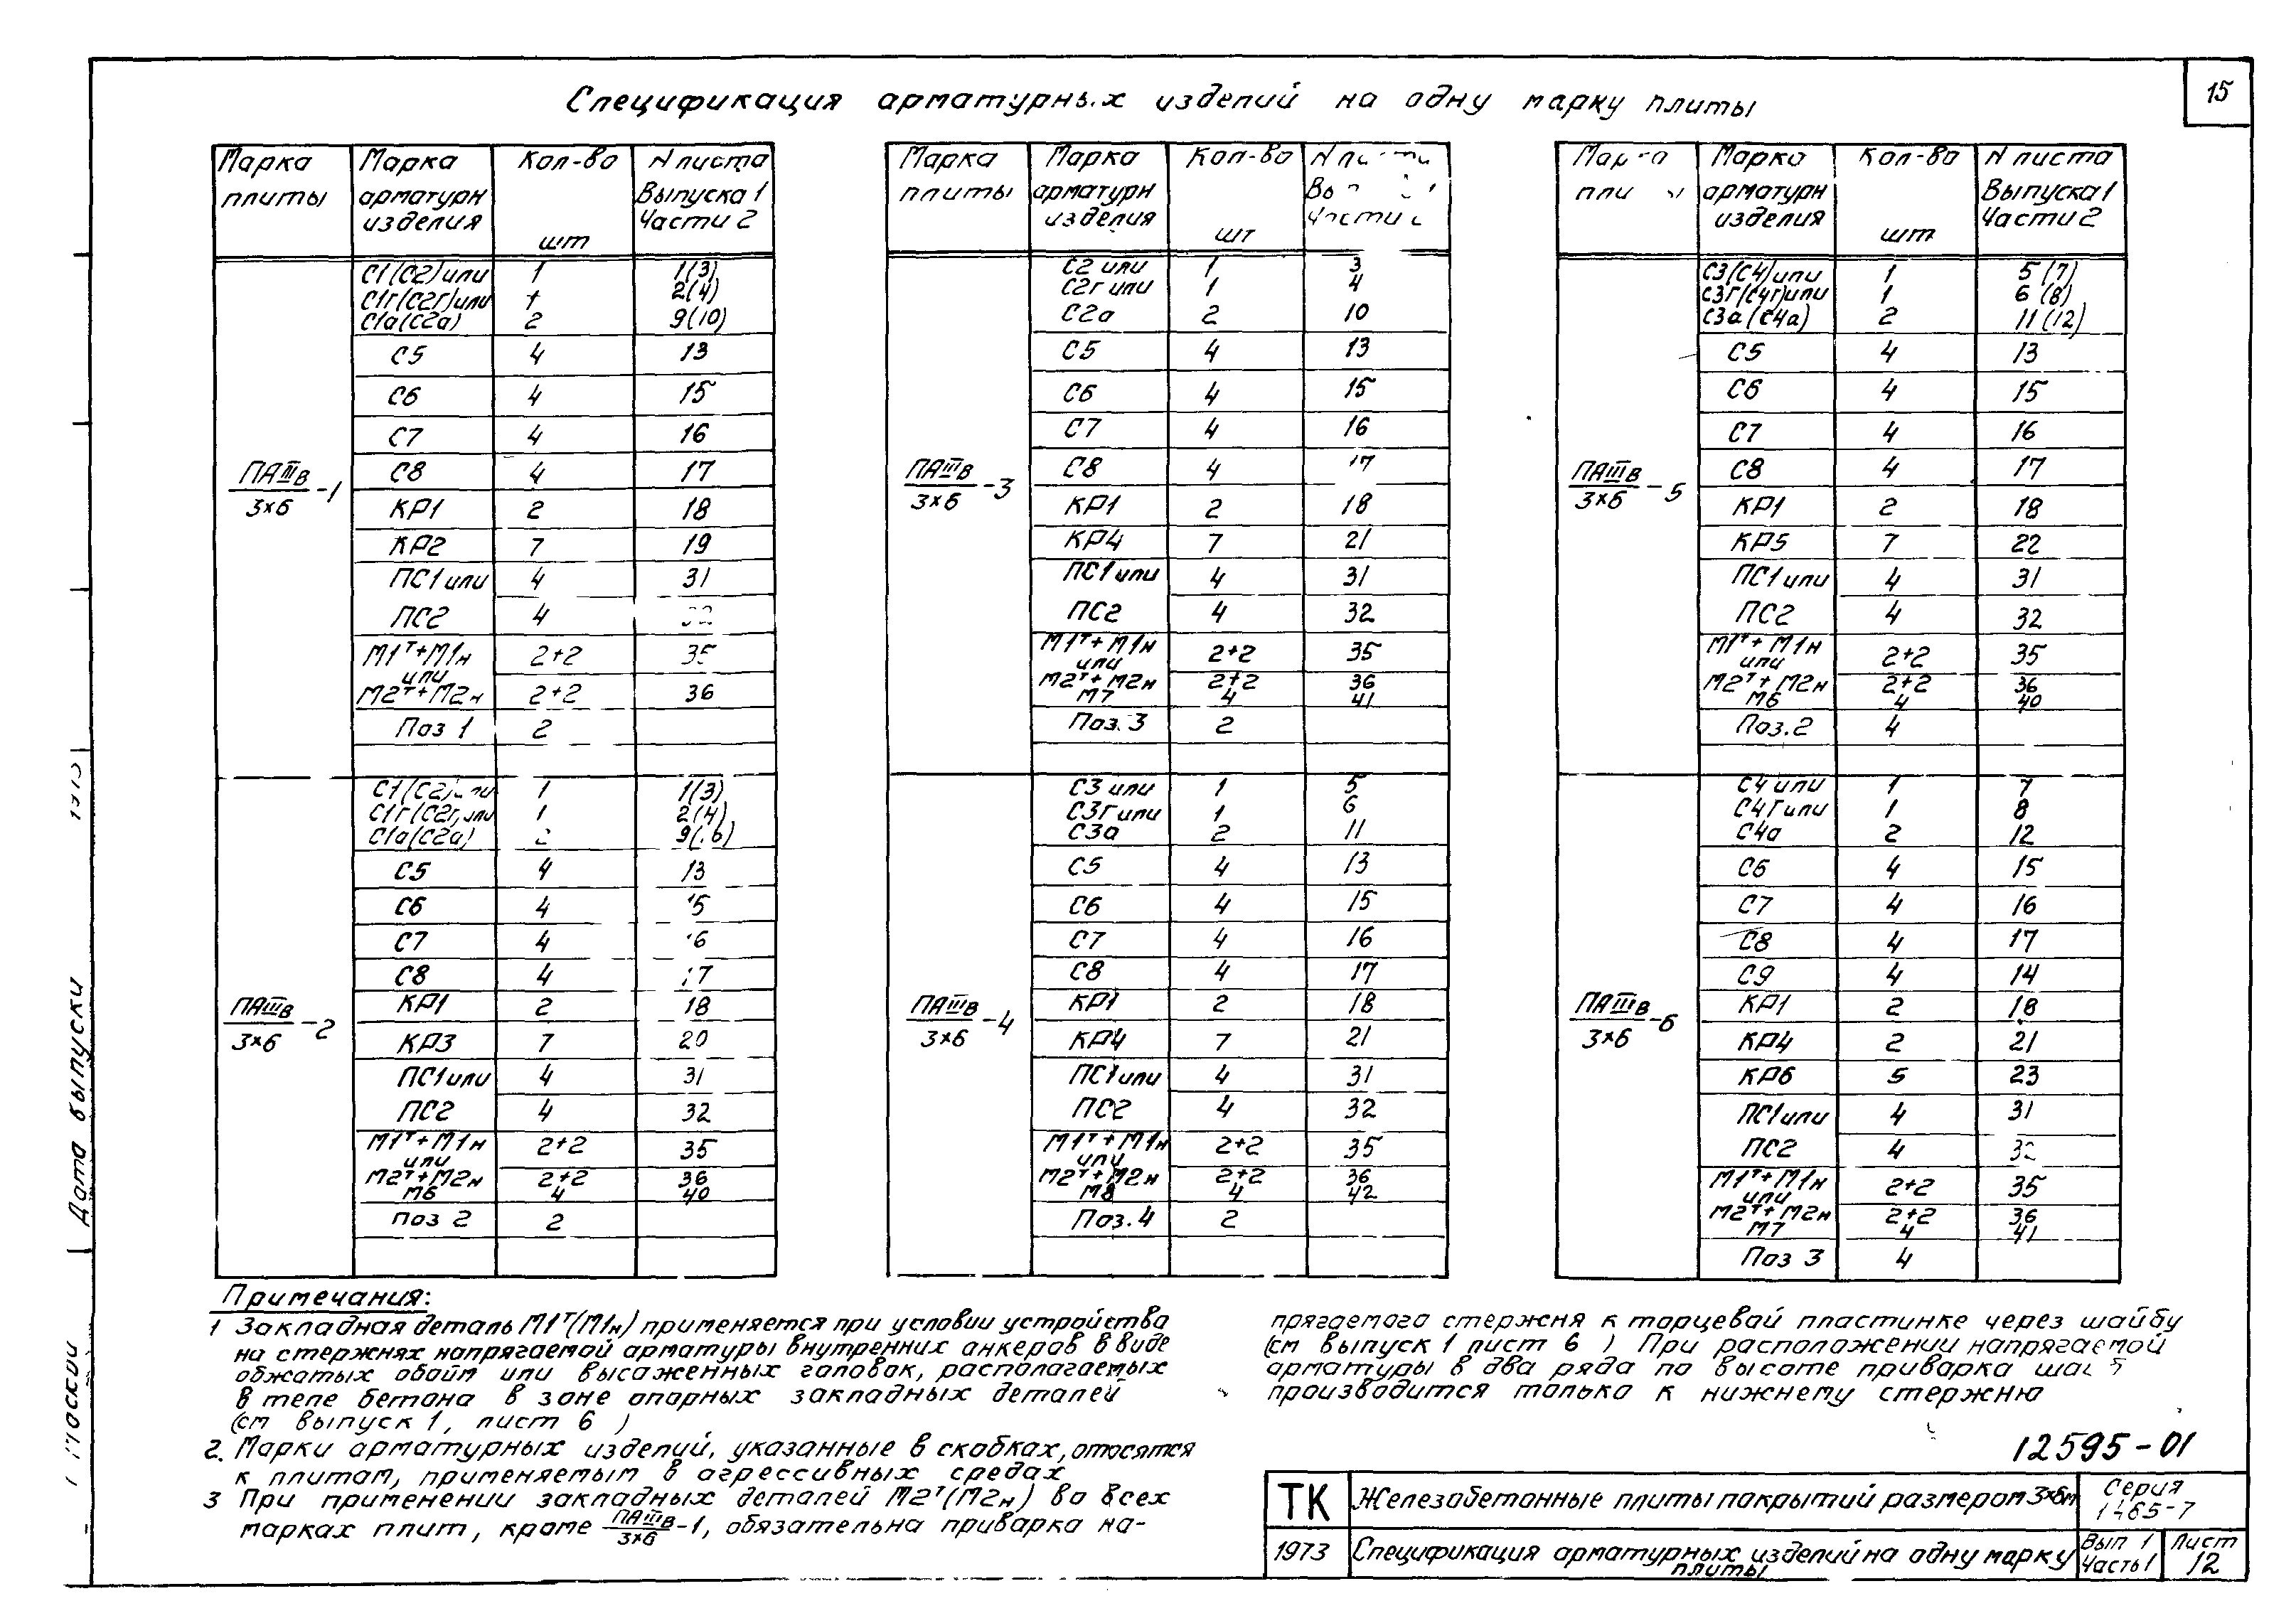 15
Спецификация арматурных изделий на одну марку плиты
Марка плиты | Марка арматурн изделия | Кол-во шт | N листа Выпуска 1 Части 2
ПАIIIв/3×6 -1
С1(С2)или 1 1(3)
С1г(С2г)или 1 2(4)
С1а(С2а) 2 9(10)
С5 4 13
С6 4 15
С7 4 16
С8 4 17
КР1 2 18
КР2 7 19
ПС1 или 4 31
ПС2 4
М1т+М1н 2+2 35
или
М2т+М2н 2+2 36
Поз 1 2
ПАIIIв/3×6 -2
С1(С2) 1 1(3)
С1г(С2г)или 1 2(4)
С1а(С2а) 2
С5 4 13
С6 4
С7 4
С8 4 17
КР1 2 18
КР3 7 20
ПС1 или 4 31
ПС2 4 32
М1т+М1н 2+2 35
или
М2т+М2н 2+2 36
М6 4 40
поз 2 2
Марка плиты | Марка арматурн изделия | Кол-во шт
ПАIIIв/3×6 -3
С2 или 1 3
С2г или 1 4
С2а 2 10
С5 4 13
С6 4 15
С7 4 16
С8 4 17
КР1 2 18
КР4 7 21
ПС1 или 4 31
ПС2 4 32
М1т+М1н 2+2 35
или
М2т+М2н 2+2 36
М7 4 41
Поз. 3 2
ПАIIIв/3×6 -4
С3 или 1 5
С3г или 1 6
С3а 2 11
С5 4 13
С6 4 15
С7 4 16
С8 4 17
КР1 2 18
КР4 7 21
ПС1 или 4 31
ПС2 4 32
М1т+М1н 2+2 35
или
М2т+М2н 2+2 36
М8 4 42
Поз. 4 2
Марка арматурн изделия | Кол-во шт | N листа Выпуска 1 Части 2
ПАIIIв/3×6 -5
С3(С4)или 1 5(7)
С3г(С4г)или 1 6(8)
С3а(С4а) 2 11(12)
С5 4 13
С6 4 15
С7 4 16
С8 4 17
КР1 2 18
КР5 7 22
ПС1 или 4 31
ПС2 4 32
М1т+М1н 2+2 35
или
М2т+М2н 2+2 36
М6 4 40
Поз. 2 4
ПАIIIв/3×6 -6
С4 или 1 7
С4г или 1 8
С4а 2 12
С6 4 15
С7 4 16
С8 4 17
С9 4 14
КР1 2 18
КР4 2 21
КР6 5 23
ПС1 или 4 31
ПС2 4 32
М1т+М1н 2+2 35
или
М2т+М2н 2+2 36
М7 4 41
Поз 3 4
Примечания:
1 Закладная деталь М1т(М1н) применяется при условии устройства
на стержнях напрягаемой арматуры внутренних анкеров в виде
обжатых обойм или высаженных головок, располагаемых
в теле бетона в зоне опорных закладных деталей
(см выпуск 1, лист 6 )
2. Марки арматурных изделий, указанные в скобках, относятся
к плитам, применяемым в агрессивных средах
3 При применении закладных деталей М2т(М2н) во всех
марках плит, кроме ПАIIIв/3×6 -1, обязательна приварка на-
прягаемого стержня к торцевой пластинке через шайбу
(см выпуск 1 лист 6 ) При расположении напрягаемой
арматуры в два ряда по высоте приварка
производится только к нижнему стержню
12595-01
ТК Железобетонные плиты покрытий размером 3×6м Серия 1465-7
1973 Спецификация арматурных изделий на одну марку плиты Вып 1 Часть 1 Лист 12
Дата выпуски